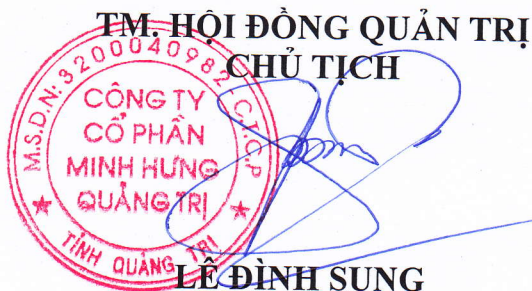 TM. HỘI ĐỒNG QUẢN TRỊ
CHỦ TỊCH
M.S.D.N: 3200040982 C.T.C.P
CÔNG TY
CỔ PHẦN
MINH HƯNG
QUẢNG TRỊ
TỈNH QUẢNG TRỊ
LÊ ĐÌNH SUNG